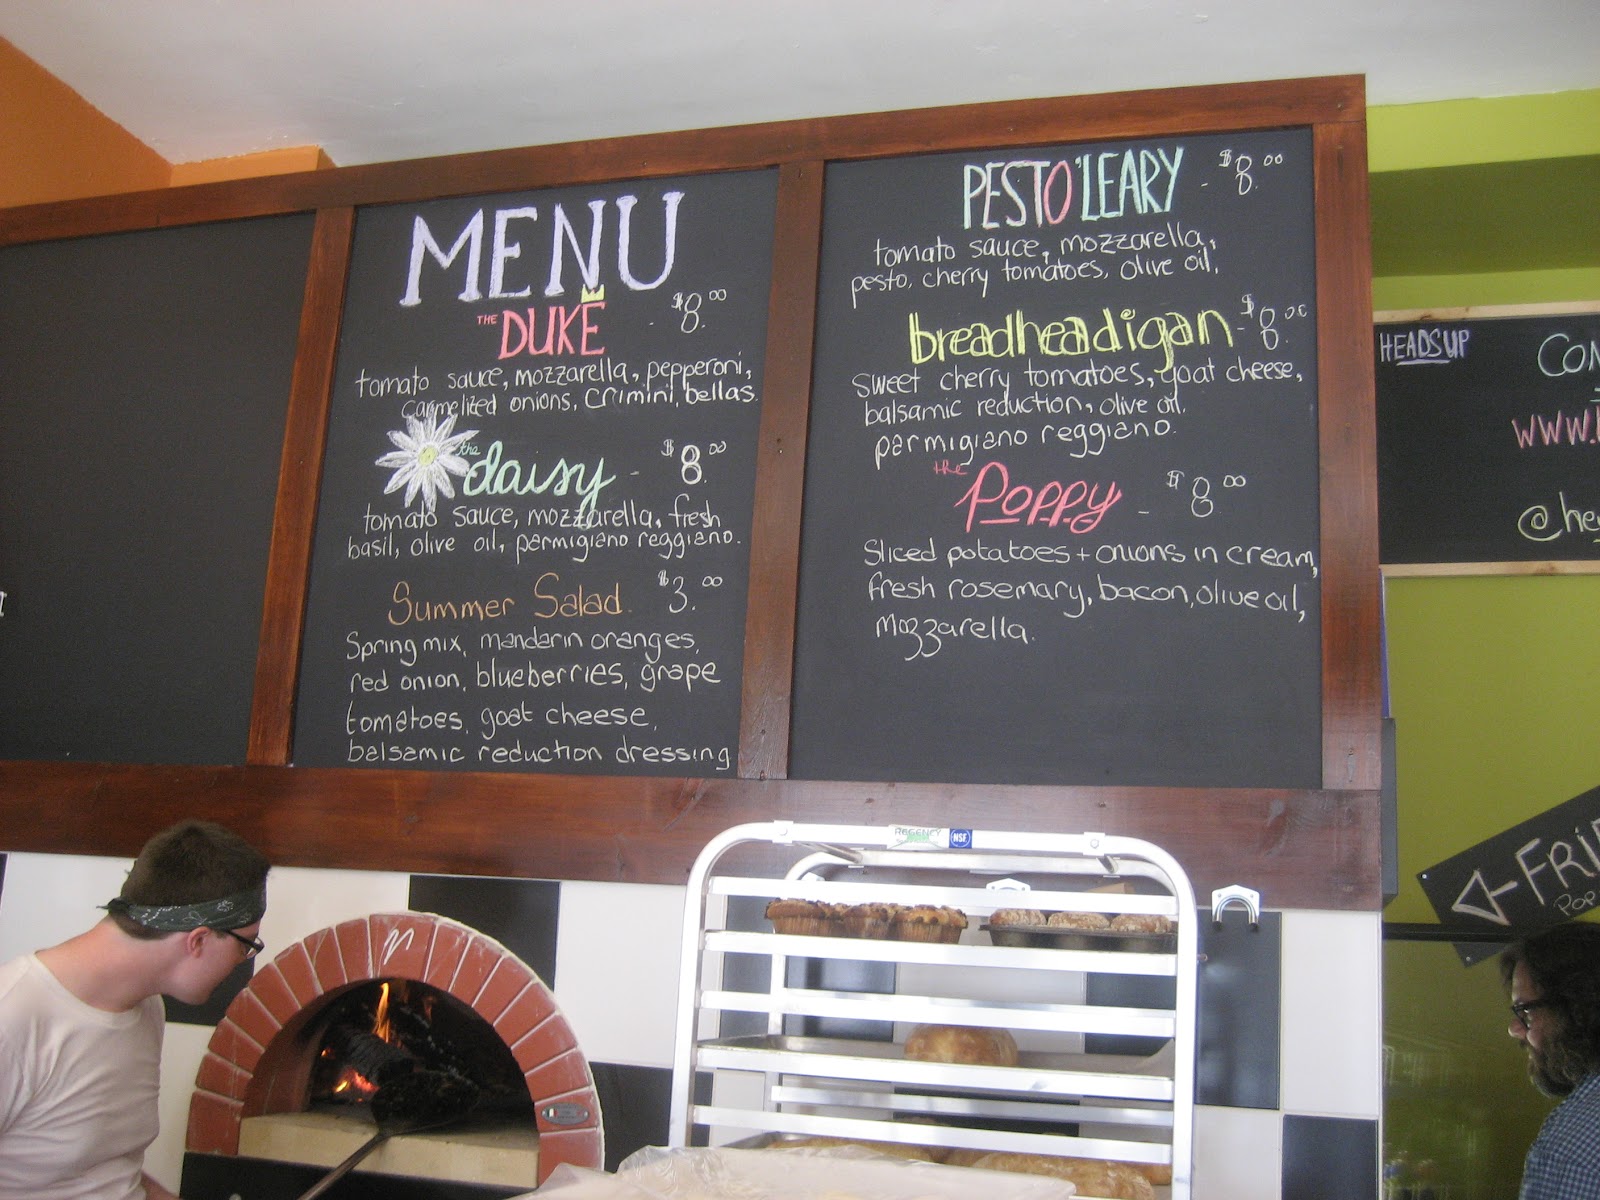 MENU
THE DUKE - $8.00
tomato sauce, mozzarella, pepperoni,
carmelized onions, crimini, bellas.
the daisy - $8.00
tomato sauce, mozzarella, fresh
basil, olive oil, parmigiano reggiano.
Summer Salad. $3.00
Spring mix, mandarin oranges,
red onion, blueberries, grape
tomatoes, goat cheese,
balsamic reduction dressing
PESTO'LEARY - $8.00
tomato sauce, mozzarella,
pesto, cherry tomatoes, olive oil,
breadheadigan - $8.00
sweet cherry tomatoes, goat cheese,
balsamic reduction, olive oil,
parmigiano reggiano.
the Poppy - $8.00
Sliced potatoes + onions in cream,
fresh rosemary, bacon, olive oil,
mozzarella.
HEADSUP
WWW.
@he
POP
REGENCY
NSF